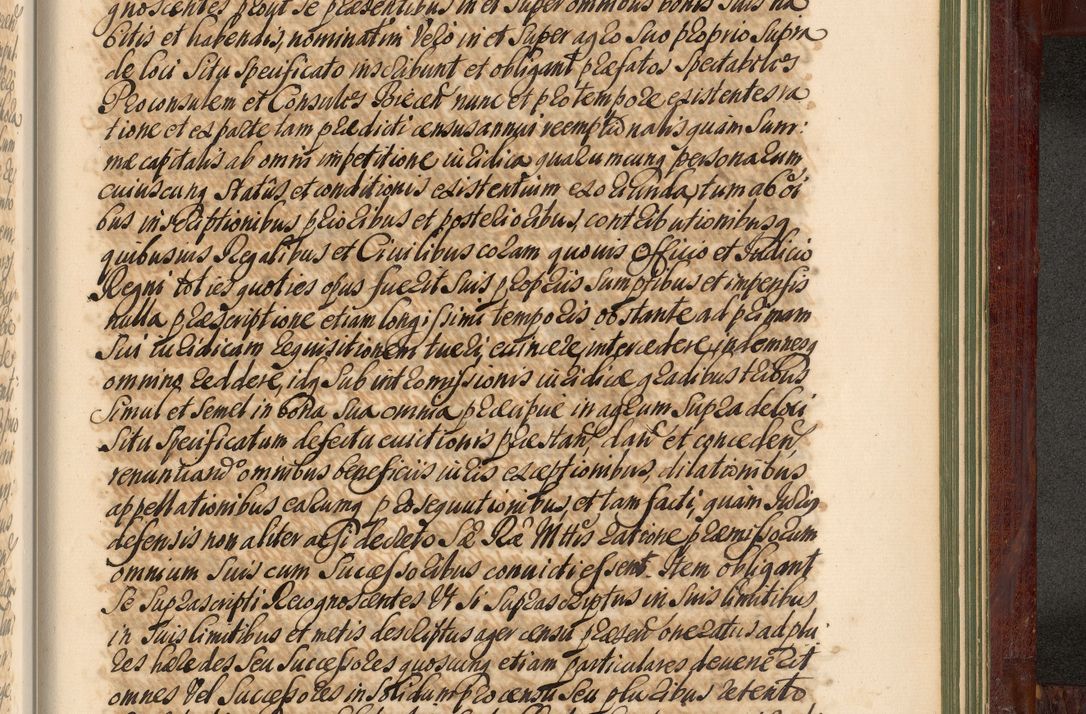 gnoscentes prout se præsentibus in et super omnibus bonis suis ha
bitis et habendis, nominatim Vero in et super agro suo proprio supra
de loci situ specificato inscribunt et obligant præfatos spectabiles
Proconsulem et Consules nunc et pro tempore existentes ra
tione et ex parte tam prædicti census annui reemptionalis quam sum:
mæ capitalis ab omni impetitione iuridica quarumcunq personarum
cuiuscunq Status et conditionis existentium exorirunda, tum ab oi
bus inscriptionibus prioribus et posterioribus, contributionibusq
quibusuis Regalibus et Ciuilibus coram quouis Officio et Iudicio
Regni toties quoties opus fuerit suis proprijs sumptibus et impensis
nulla præscriptione etiam longissimi temporis obstante ad primam
sui iuridicam requisitionem tueri, euincere, intercedere, indemnesq
omnino reddere, idq sub intromissionis iuridicæ gradibus tribus
simul et semel in bona sua omnia præcipue in agrum supra de loci
situ specificatum defectu euictionis præstan dan et conceden
renuntiando omnibus beneficijs iuris exceptionibus, dilationibus
appellationibus earumq prosequutionibus, et tam facti, quam Iuris
defensis non aliter ac si decreto Sæ Ræ Mttis ratione præmissorum
omnium suis cum Successoribus conuicti essent. Item obligant
se suprascripti Recognoscentes Vt si suprascriptus in suis limitibus
in suis limitibus et metis descriptus ager censu præsen oneratus ad plu
res hæredes seu Successores quoscunq etiam particulares deuenerit
omnes Vel Successores in solidum pro censu seu pluribus retento